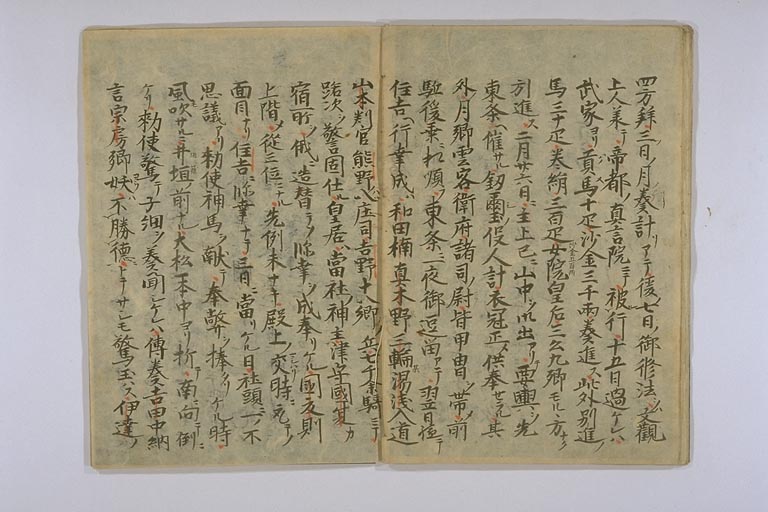 四方拜三日ノ月奏計リアテ後七日ノ御修法ハ文觀
上人兼テ帝都ノ真言院ニテ被行十五日過ケレハ
武家ヨリ貢馬十疋沙金三千兩奏進ス此外別進ノ
馬三十疋巻絹三百疋女院皇后三公九卿モルヽ方ナク
引進ス二月廿六日主上已ニ山中ヲ御出アリテ腰輿ヲ先
東条ヘ催サル釼璽ノ役人計衣冠正ノ供奉セラル其
外ハ月卿雲客衛府諸司ノ尉皆甲冑ヲ帯シ前
駈後乗ニ相順フ東条ニ一夜御逗留アテ翌日直ニ
住吉ヘ行幸成ハ和田楠真木野三輪湯浅入道
山本判官熊野ノ八庄司吉野十八郷ノ兵七千余騎ニテ
路次ヲ警固仕ル皇居ハ當社ノ神主津守國夏カ
宿所ヲ俄ニ造替テソ臨幸ヲ成奉リケル國夏則
上階ノ従三位ニ先例未ナキ殿上ノ交時ニ取テノ
面目ナリ住吉ニ臨幸ナテ三日ニ當リケル日社頭ニ一ノ不
思議アリ勅使神馬ヲ献テ奉幣ヲ捧ケル時
風吹サルニ井垣ノ前ナル大松一本中ヨリ折テ南ニ向テ倒ニ
ケリ勅使驚テ子細ヲ奏聞シケレハ傳奏吉田中納
言宗房卿妖ハ不勝德トテサシモ驚玉ハス伊達ノ